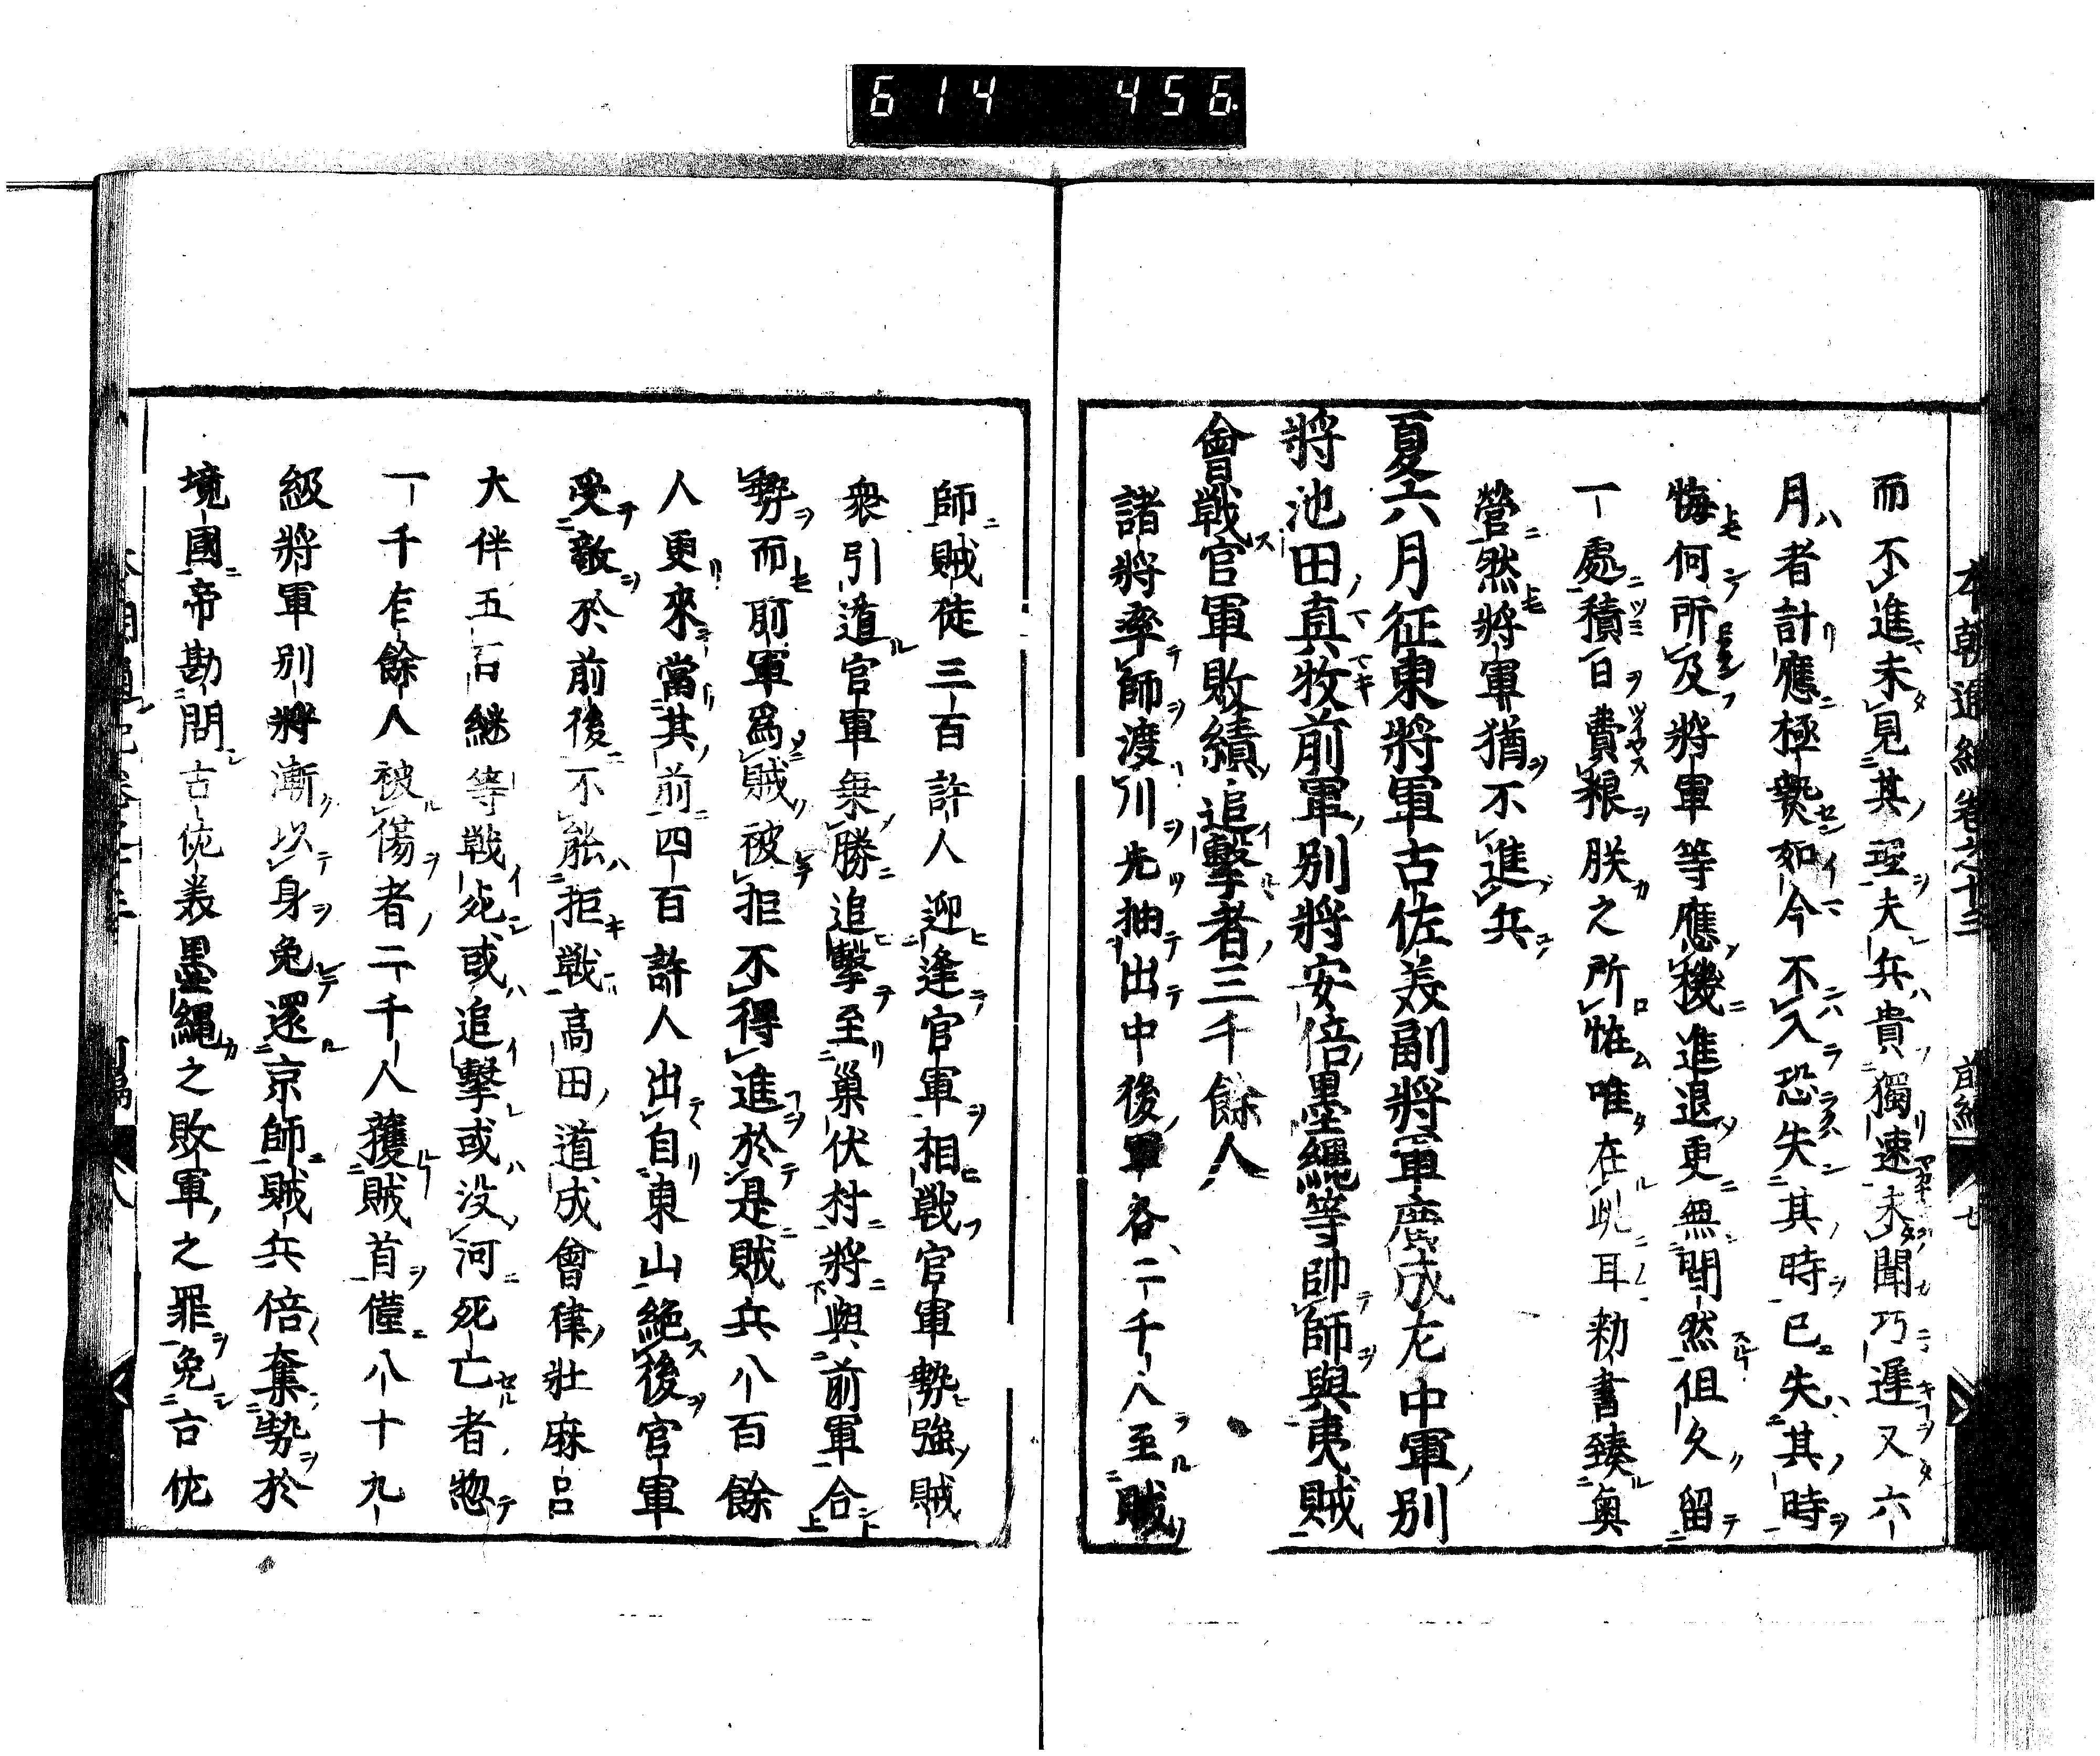 614 456
本朝通紀卷之十三 前編 七
而不進未見其理夫兵貴獨速未聞巧遲又六
月者計應極熱如今不入恐失其時已失其時
悔何所及將軍等應機進退更無間然但久留
一處積日費粮朕之所恠唯在此耳勑書臻奥
營然將軍猶不進兵
夏六月征東將軍古佐美副將軍廣成左中軍別
將池田真牧前軍別將安倍墨繩等帥師與夷賊
會戰官軍敗績追擊者三千餘人
諸將率師渡川先抽出中後軍各二千人至賊
師賊徒三百許人迎逢官軍相戰官軍勢強賊
衆引遁官軍乗勝追擊至巢伏村將與前軍合
勢而前軍爲賊被拒不得進於是賊兵八百餘
人更來當其前四百許人出自東山絶後官軍
受敵於前後不能拒戰高田道成會律壯麻呂
大伴五百継等戰死或追擊或没河死亡者惣
一千乍餘人被傷者二千人獲賊首僅八十九
級將軍別將漸以身免還京師賊兵倍奮勢於
境國帝勘問古佐美墨繩之敗軍之罪免古佐